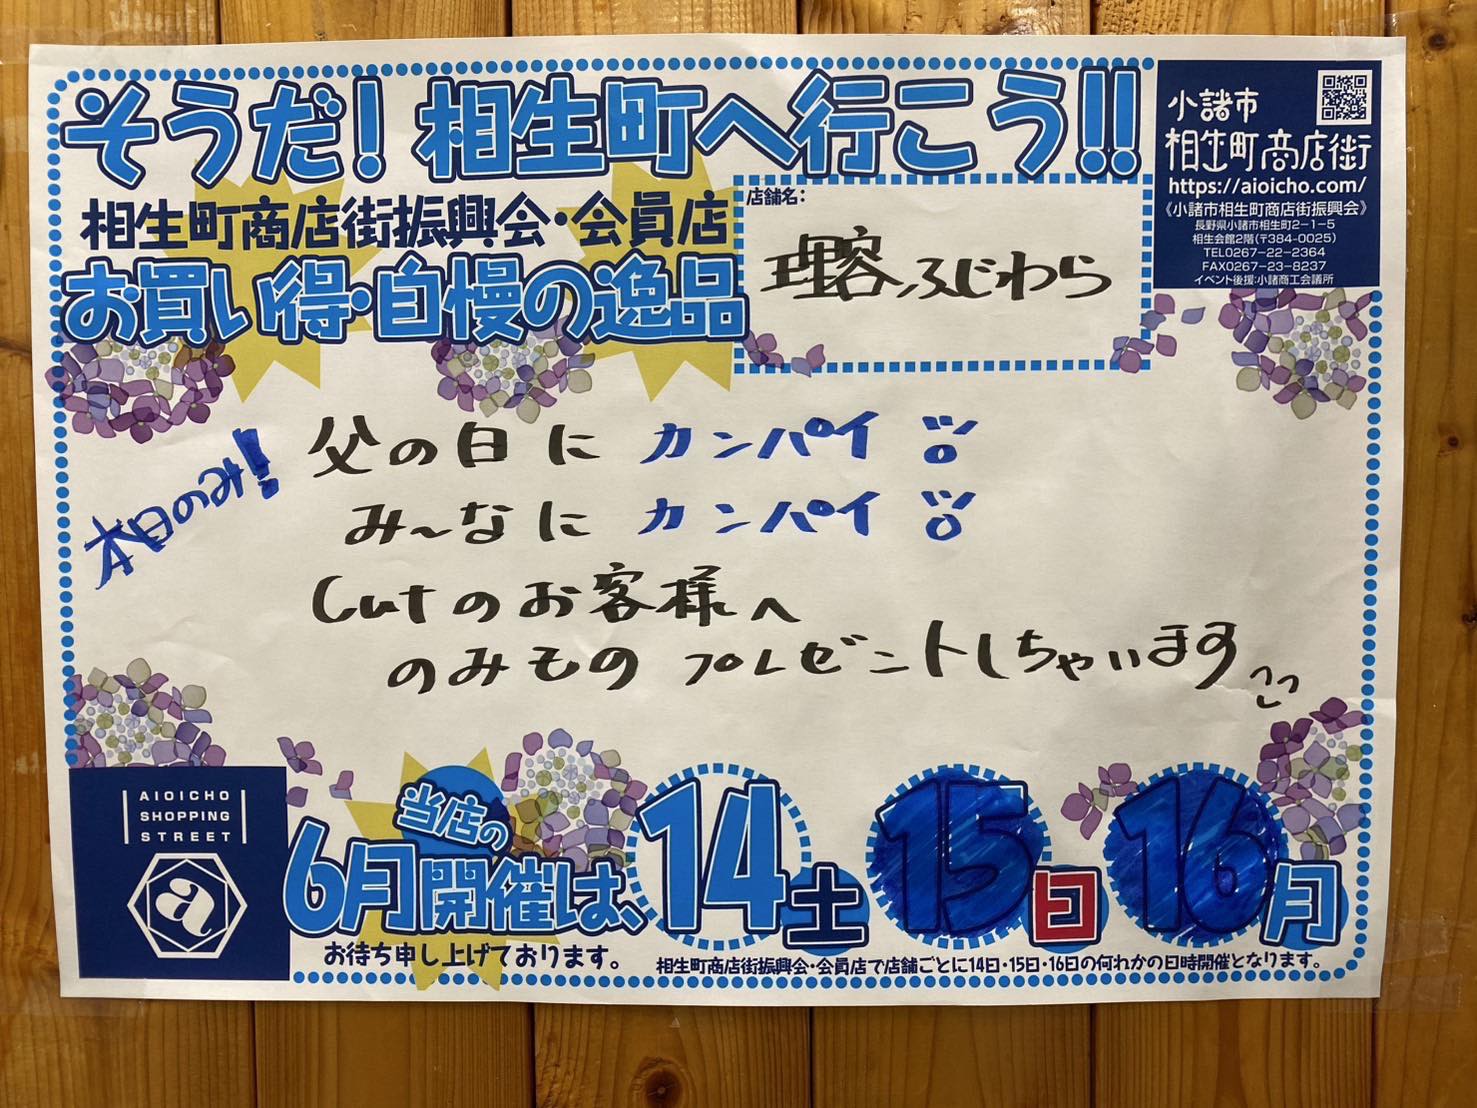 そうだ!相生町へ行こう!!
相生町商店街振興会・会員店
お買い得・自慢の逸品
店舗名:
理容ふじわら
小諸市
相生町商店街
https://aioicho.com/
《小諸市相生町商店街振興会》
長野県小諸市相生町2-1-5
相生会館2階(〒384-0025)
TEL0267-22-2364
FAX0267-23-8237
イベント後援:小諸商工会議所
本日のみ!
父の日にカンパイ
み〜なにカンパイ
Cutのお客様へ
のみものプレゼントしちゃいます
AIOICHO
SHOPPING
STREET
a
当店の
6月開催は、14土15日16月
お待ち申し上げております。
相生町商店街振興会・会員店で店舗ごとに14日・15日・16日の何れかの日時開催となります。